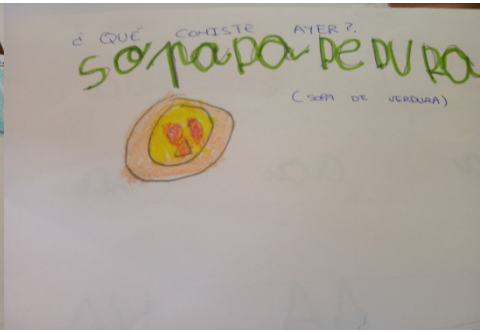 ¿ QUÉ COMISTE AYER?.
SOPADAPEDURA
(SOPA DE VERDURA)